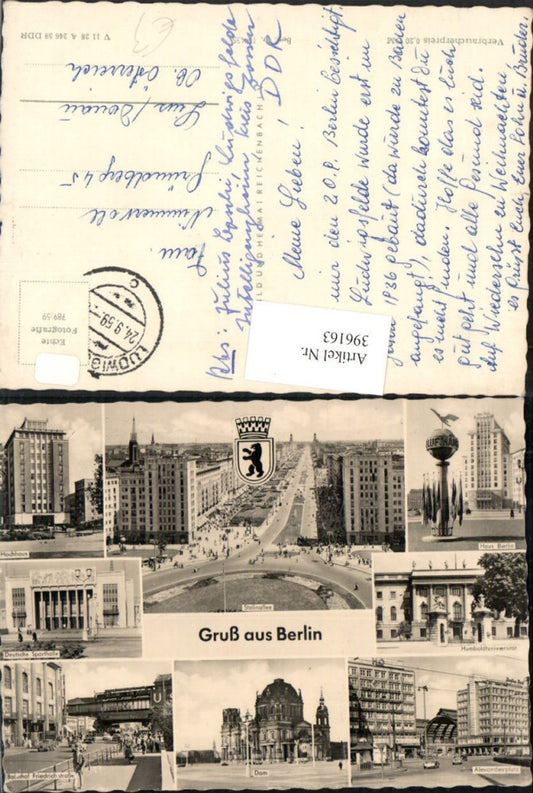 Verbraucherpreis 0,20 DM
V 11 28 A 246 59 DDR
BILD UND HEIMAT REICHENBACH
Echte
Fotografie
789/59
LUDWIGS
24.9.59
C
Artikel Nr.
396163
Fam.
Nimmervoll
Gründberg 45
Linz/Donau
Ob. Österreich
Abs: Julius
Ludwigsfelde
Kreis Zossen
DDR
Meine Lieben!
wir den 20. P. Berlin besichtigt.
Ludwigsfelde wurde erst im
Jahre 1936 gebaut (da wurde zu Bauen
angefangt), dadurch konntest Du
es nicht finden. Hoffe das es Euch
gut geht und alle Gesund seid.
Auf Wiedersehn zu Weihnachten
es grüsst Euch, Euer Sohn u. Bruder.
LUFTHANSA
Hochhaus
Stalinallee
Haus Berlin
Deutsche Sporthalle
Gruß aus Berlin
Humboldtuniversität
U
Bahnhof Friedrichstraße
Dom
Alexanderplatz